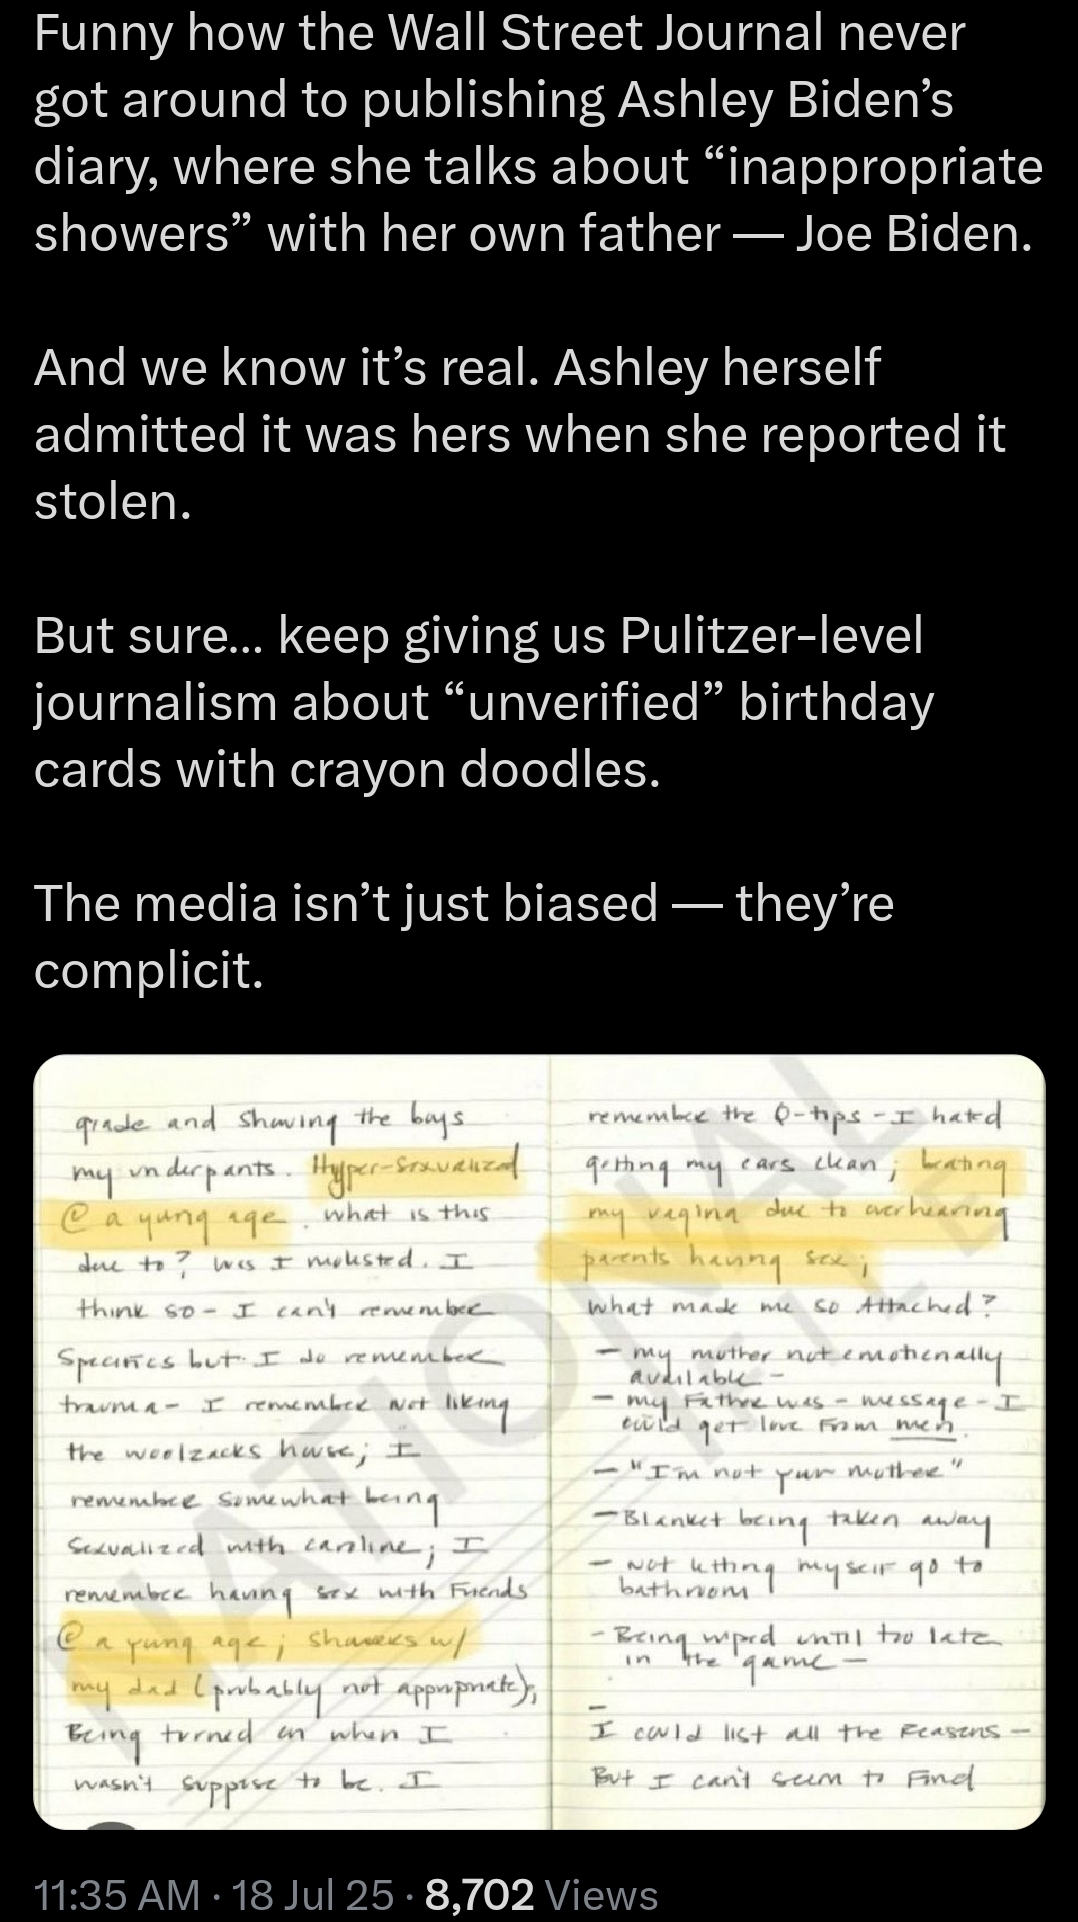 Funny how the Wall Street Journal never
got around to publishing Ashley Biden’s
diary, where she talks about “inappropriate
showers” with her own father — Joe Biden.
And we know it’s real. Ashley herself
admitted it was hers when she reported it
stolen.
But sure... keep giving us Pulitzer-level
journalism about “unverified” birthday
cards with crayon doodles.
The media isn’t just biased — they’re
complicit.
grade and showing the boys
my underpants. Hyper-sexualized
@ a young age. what is this
due to? Was I molested. I
think so - I can't remember
Specifics but I do remember
trauma - I remember not liking
the woolzacks house; I
remember somewhat being
sexualized with caroline; I
remember having sex with friends
@ a young age; showers w/
my dad (probably not appropriate);
Being turned on when I
wasn't suppose to be. I
remember the Q-tips - I hated
getting my ears clean;
my vagina due to overhearing
parents having sex;
What made me so Attached?
- my mother not emotionally
available -
- my Father was - message - I
could get love From men.
- "I'm not your mother"
- Blanket being taken away
- not letting myself go to
bathroom
- Being wiped until too late
in the game -
-
I could list all the Reasons -
But I can't seem to Find
NATIONAL
11:35 AM · 18 Jul 25 · 8,702 Views